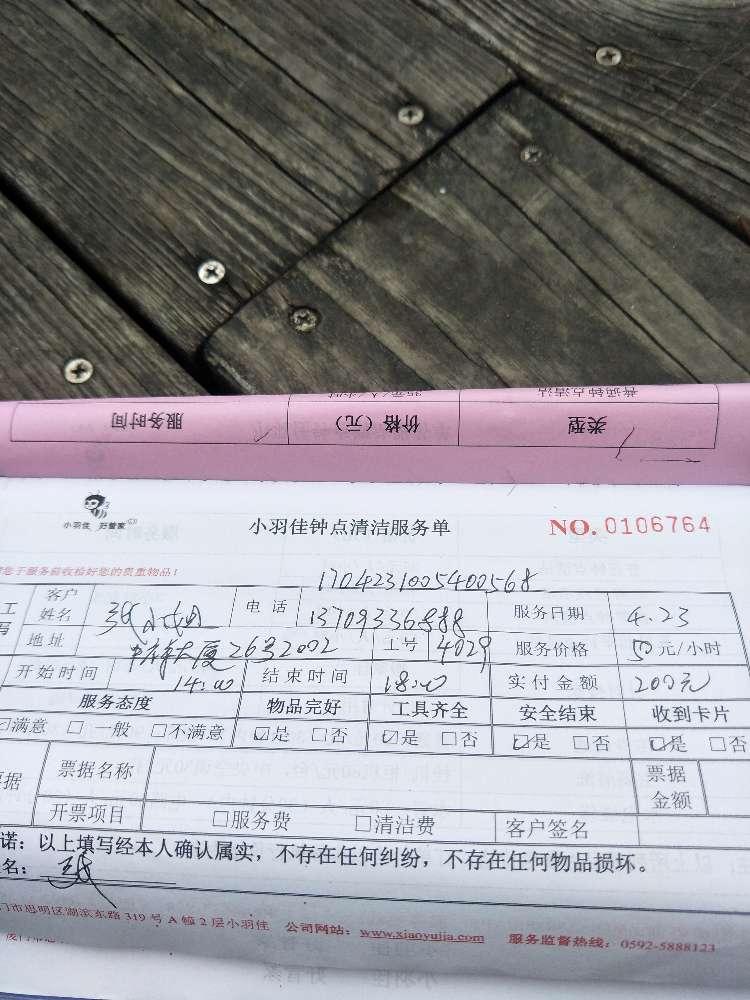 普通钟点清洁
类型 价格（元） 服务时间
小羽佳 好管家
小羽佳钟点清洁服务单 NO. 0106764
您于服务前收检好您的贵重物品！
1704231005400568
客户姓名 张小姐 电话 13709336888 服务日期 4.23
地址 大厦26号2002 工号 4029 服务价格 50元/小时
开始时间 14:00 结束时间 18:00 实付金额 200元
服务态度 物品完好 工具齐全 安全结束 收到卡片
☑满意 □一般 □不满意 ☑是 □否 ☑是 □否 ☑是 □否 ☑是 □否
票据名称 票据金额
开票项目 □服务费 □清洁费 客户签名
诺：以上填写经本人确认属实，不存在任何纠纷，不存在任何物品损坏。
名：张
门市思明区湖滨东路 319 号 A 幢 2 层小羽佳 公司网站：www.xiaoyujia.com 服务监督热线：0592-5888123